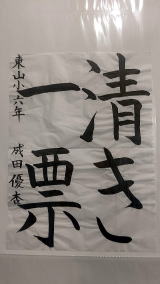 清き
一票
東山小六年 成田優杏